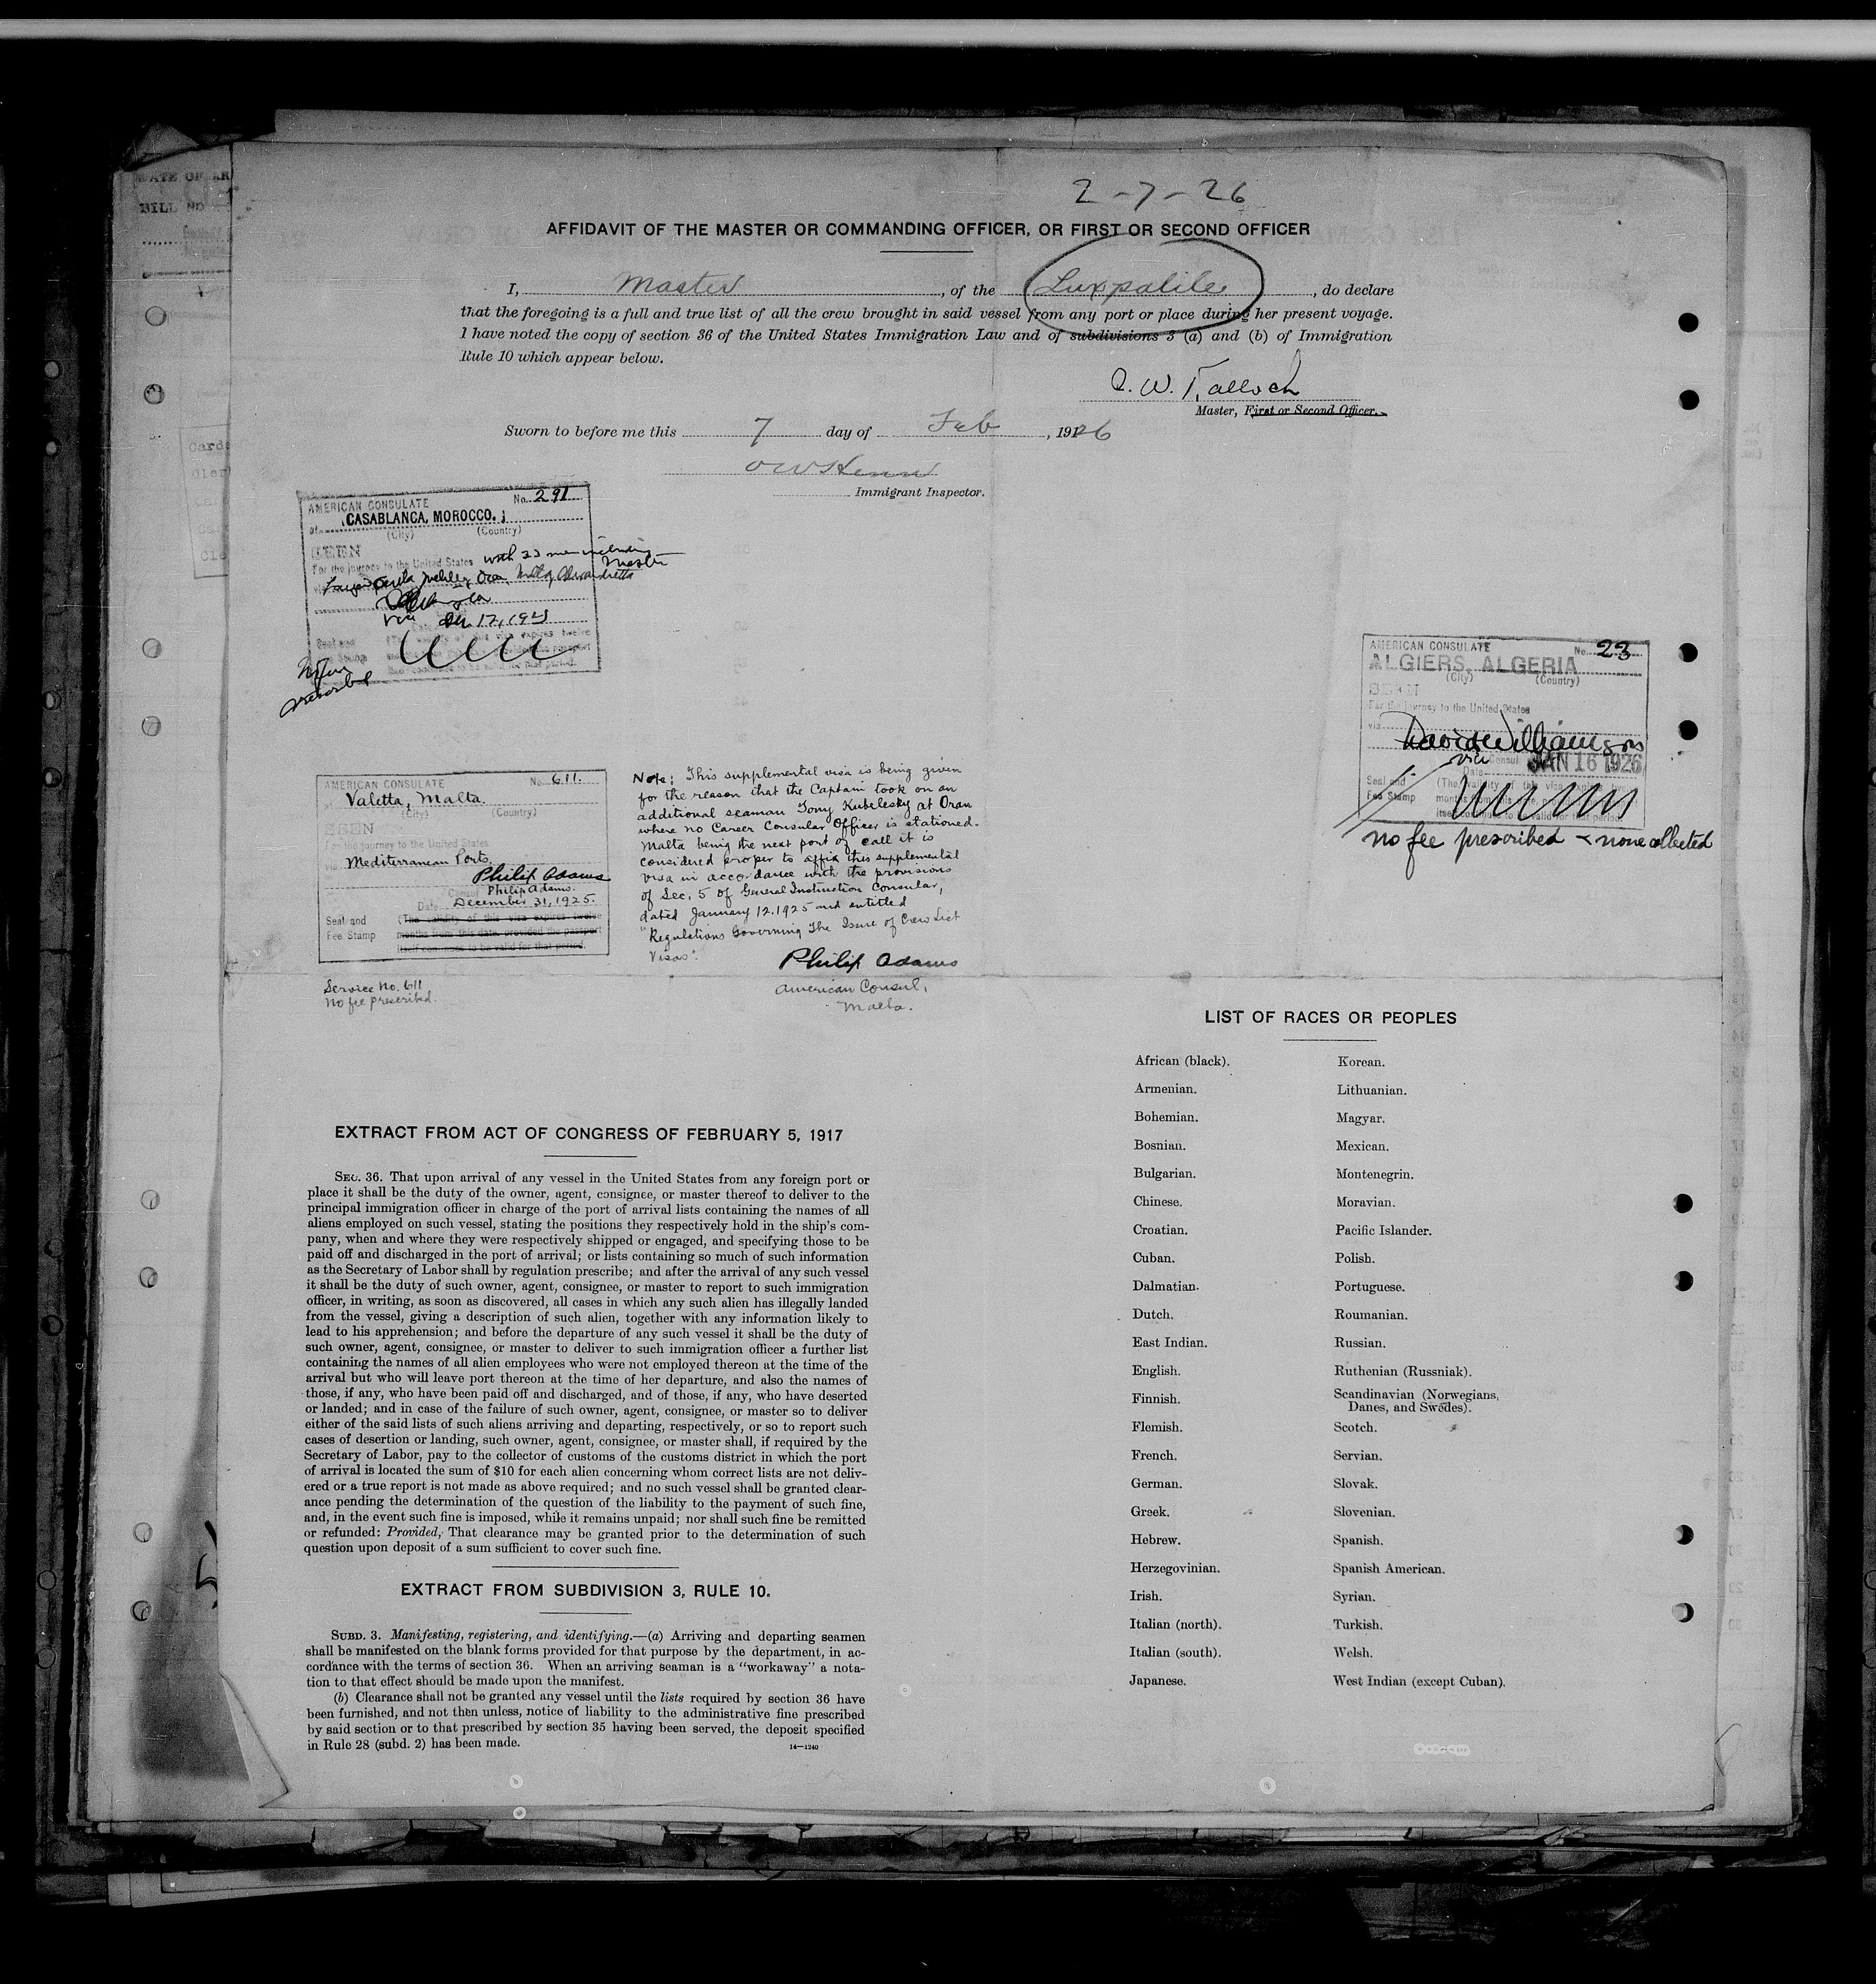 DATE OF AR
BILL NO
2-7-26
AFFIDAVIT OF THE MASTER OR COMMANDING OFFICER, OR FIRST OR SECOND OFFICER
I, Master, of the Luxpalile, do declare
that the foregoing is a full and true list of all the crew brought in said vessel from any port or place during her present voyage.
I have noted the copy of section 36 of the United States Immigration Law and of subdivisions 3 (a) and (b) of Immigration
Rule 10 which appear below.
W. Talloch
Master, First or Second Officer.
Sworn to before me this 7 day of Feb, 1926
Immigrant Inspector.
AMERICAN CONSULATE No. 291
at CASABLANCA, MOROCCO.
(City) (Country)
SEEN
For the journey to the United States with 23 men including
Master
via Oran, Malta, Alexandretta
Dec. 17, 1925
No fee
prescribed
AMERICAN CONSULATE No. 23
ALGIERS, ALGERIA
(City) (Country)
SEEN
For the journey to the United States
via
David Williamson
Vice Consul
Date JAN 16 1926
Seal and
Fee Stamp
(The validity of this visa expires twelve
no fee prescribed - none collected
AMERICAN CONSULATE No. 611.
at Valetta, Malta.
(City) (Country)
SEEN
For the journey to the United States
via Mediterranean Ports.
Philip Adams
Consul Philip Adams.
Date December 31, 1925.
Seal and (The validity of this visa expires twelve
Fee Stamp months from this date, provided the passport
itself continues to be valid for that period.
Service No. 611
No fee prescribed.
Note: This supplemental visa is being given
for the reason that the Captain took on an
additional seaman Tony Kubelesky at Oran
where no Career Consular Officer is stationed.
Malta being the next port of call it is
considered proper to affix this supplemental
visa in accordance with the provisions
of Sec. 5 of General Instruction Consular,
dated January 12, 1925 and entitled
"Regulations Governing The Issue of Crew List
Visas".
Philip Adams
American Consul,
Malta.
EXTRACT FROM ACT OF CONGRESS OF FEBRUARY 5, 1917
SEC. 36. That upon arrival of any vessel in the United States from any foreign port or
place it shall be the duty of the owner, agent, consignee, or master thereof to deliver to the
principal immigration officer in charge of the port of arrival lists containing the names of all
aliens employed on such vessel, stating the positions they respectively hold in the ship's com-
pany, when and where they were respectively shipped or engaged, and specifying those to be
paid off and discharged in the port of arrival; or lists containing so much of such information
as the Secretary of Labor shall by regulation prescribe; and after the arrival of any such vessel
it shall be the duty of such owner, agent, consignee, or master to report to such immigration
officer, in writing, as soon as discovered, all cases in which any such alien has illegally landed
from the vessel, giving a description of such alien, together with any information likely to
lead to his apprehension; and before the departure of any such vessel it shall be the duty of
such owner, agent, consignee, or master to deliver to such immigration officer a further list
containing the names of all alien employees who were not employed thereon at the time of the
arrival but who will leave port thereon at the time of her departure, and also the names of
those, if any, who have been paid off and discharged, and of those, if any, who have deserted
or landed; and in case of the failure of such owner, agent, consignee, or master so to deliver
either of the said lists of such aliens arriving and departing, respectively, or so to report such
cases of desertion or landing, such owner, agent, consignee, or master shall, if required by the
Secretary of Labor, pay to the collector of customs of the customs district in which the port
of arrival is located the sum of $10 for each alien concerning whom correct lists are not deliv-
ered or a true report is not made as above required; and no such vessel shall be granted clear-
ance pending the determination of the question of the liability to the payment of such fine,
and, in the event such fine is imposed, while it remains unpaid; nor shall such fine be remitted
or refunded: Provided, That clearance may be granted prior to the determination of such
question upon deposit of a sum sufficient to cover such fine.
EXTRACT FROM SUBDIVISION 3, RULE 10.
SUBD. 3. Manifesting, registering, and identifying.—(a) Arriving and departing seamen
shall be manifested on the blank forms provided for that purpose by the department, in ac-
cordance with the terms of section 36. When an arriving seaman is a "workaway" a nota-
tion to that effect should be made upon the manifest.
(b) Clearance shall not be granted any vessel until the lists required by section 36 have
been furnished, and not then unless, notice of liability to the administrative fine prescribed
by said section or to that prescribed by section 35 having been served, the deposit specified
in Rule 28 (subd. 2) has been made.
14—1240
LIST OF RACES OR PEOPLES
African (black). Korean.
Armenian. Lithuanian.
Bohemian. Magyar.
Bosnian. Mexican.
Bulgarian. Montenegrin.
Chinese. Moravian.
Croatian. Pacific Islander.
Cuban. Polish.
Dalmatian. Portuguese.
Dutch. Roumanian.
East Indian. Russian.
English. Ruthenian (Russniak).
Finnish. Scandinavian (Norwegians,
Danes, and Swedes).
Flemish. Scotch.
French. Servian.
German. Slovak.
Greek. Slovenian.
Hebrew. Spanish.
Herzegovinian. Spanish American.
Irish. Syrian.
Italian (north). Turkish.
Italian (south). Welsh.
Japanese. West Indian (except Cuban).